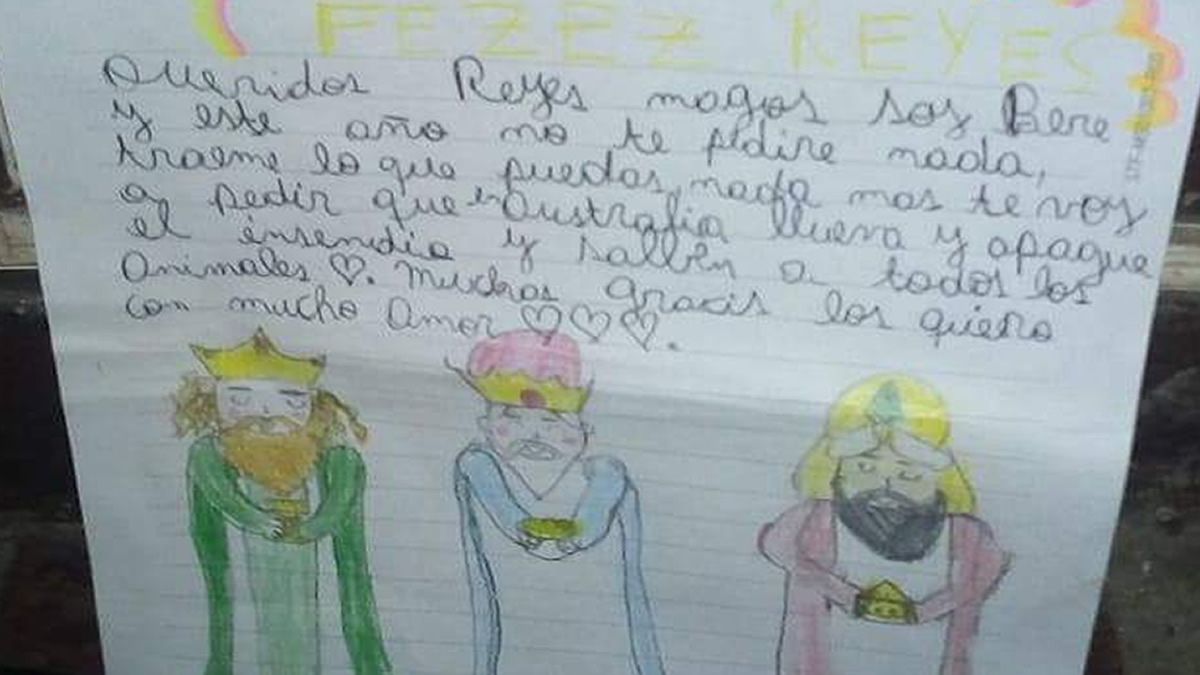 FEZEZ REYES
Queridos Reyes magos soy Bere
y este año no te pidire nada,
traeme lo que puedas, nada mas te voy
a pedir que en Australia llueva y apague
el insendio y salben a todos los
animales ♡. Muchas gracis los quiero
con mucho amor ♡♡♡.